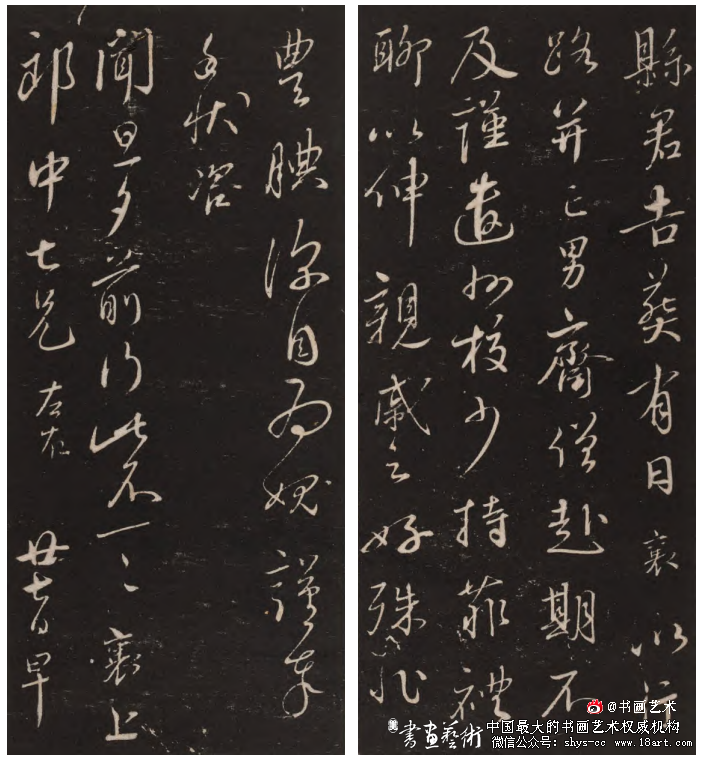 縣君吉葬有日襄以行
路并亡男齋僧赴期不
及謹遣州校少持菲禮
聊以伸親戚之好殊非
豐腆深自為愧謹奉
手狀咨
聞旦夕前行此不一一襄上
郎中七兄左右 廿七日早
@书画艺术
書畫藝術
中国最大的书画艺术权威机构
微信公众号：shys-cc www.18art.com